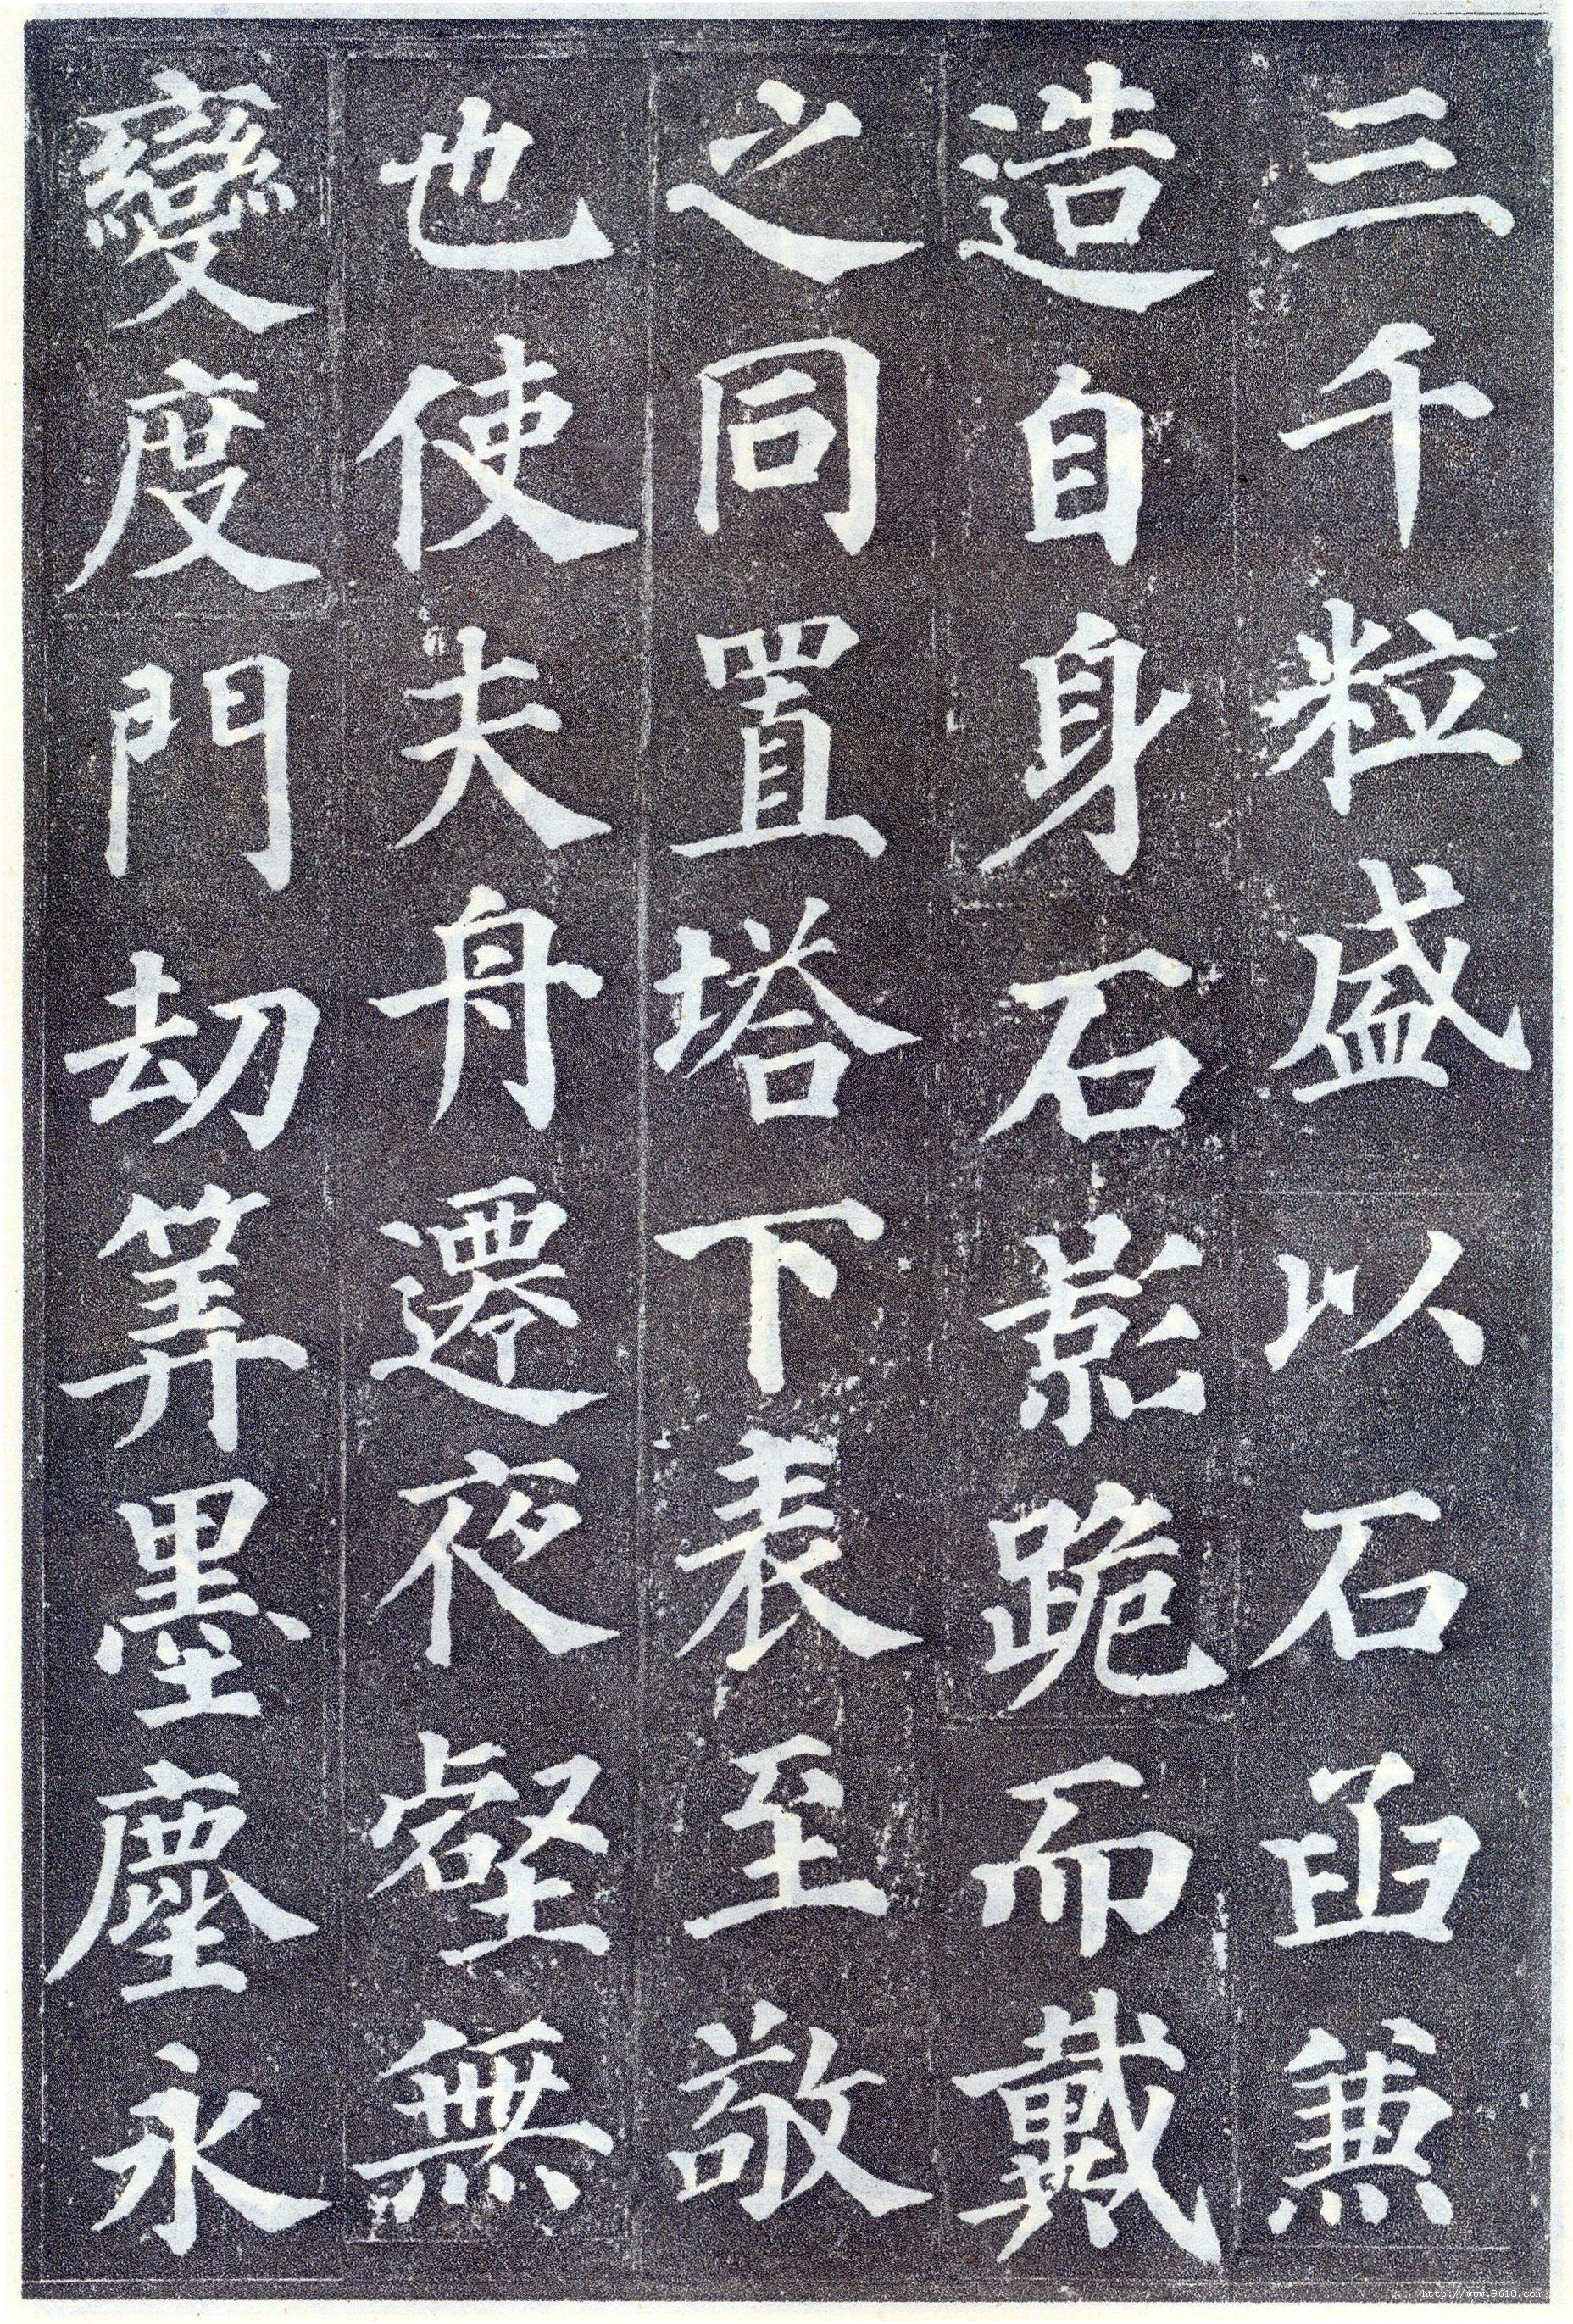 三千粒盛以石函兼
造自身石影跪而戴
之同置塔下表至敬
也使夫舟遷夜壑無
變度門劫筭墨塵永
http://www.9610.com